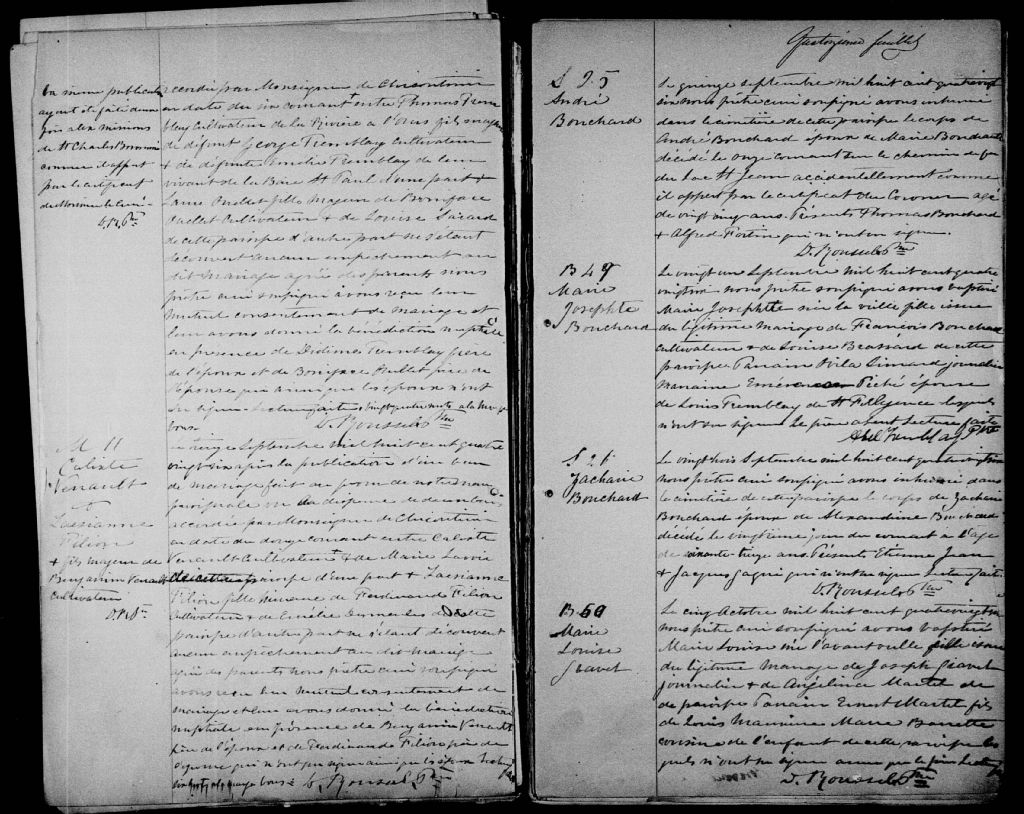 La même publication
ayant été faite
de St Charles Borromé
comme il appert
par le certificat
de Monsieur le Curé
D. R. Ptre
accordée par Monseigneur de Chicoutimi
en date du six courant entre Thomas Trem
blay Cultivateur de la Rivière à l'Ours fils majeur
de défunt George Tremblay Cultivateur
& de défunte Emelie Tremblay de leur
vivant de la Baie St Paul d'une part &
Laure Ouellet fille majeure de Boniface
Ouellet Cultivateur & de Louise Savard
de cette paroisse d'autre part ne s'étant
découvert aucun empêchement au
dit mariage agrée des parents nous
prêtre curé soussigné avons reçu leur
mutuel consentement de mariage et
leur avons donné la bénédiction nuptiale
en présence de Didime Tremblay frère
de l'époux et de Boniface Ouellet père de
l'épouse qui ainsi que les époux n'ont
su signer. Lecture faite vingt quatre mots à la marge
bons
D. Roussel Ptre
M 11
Calixte
Venault
&
Lassianne
Filion
& fils majeur de
Benjamin Venault
Cultivateur
D. R. Ptre
Septembre mil huit cent quatre
vingt six après la publication d'un ban
de mariage fait au prône de notre messe
paroissiale vu la dispense de deux bans
accordée par Monseigneur de Chicoutimi
en date du douze courant entre Calixte
Venault Cultivateur & de Marie Lavoie
de cette paroisse d'une part & Lassianne
Filion fille mineure de Ferdinand Filion
Cultivateur & de Emélie de cette
paroisse d'autre part ne s'étant découvert
aucun empêchement au dit mariage
agrée des parents nous prêtre curé soussigné
avons reçu leur mutuel consentement de
mariage et leur avons donné la bénédiction
nuptiale en présence de Benjamin Venault
père de l'époux et de Ferdinand Filion père de
l'épouse qui n'ont pu signer ainsi que les époux Lecture faite
D. Roussel Ptre
Quatorzième feuillet
S 25
André
Bouchard
Le quinze septembre mil huit cent quatrevingt
six nous prêtre curé soussigné avons inhumé
dans le cimetière de cette paroisse le corps de
André Bouchard époux de Marie Boudreault
décédé le onze courant sur le chemin de fer
du Lac St Jean accidentellement comme
il appert par le certificat du Coroner agé
de vingt neuf ans. Présents Thomas Bouchard
& Alfred Fortin qui n'ont su signer
D. Roussel Ptre
B 49
Marie
Josephte
Bouchard
Le vingt une Septembre mil huit cent quatre
vingt six nous prêtre soussigné avons baptisé
Marie Josephte née la veille fille issue
du légitime mariage de François Bouchard
cultivateur & de Louise Brassard de cette
paroisse Parrain Avila Simard journalier
Marraine Emérence Piché épouse
de Louis Tremblay de St Fulgence lesquels
n'ont su signer Le père absent Lecture faite
Abel Tremblay Ptre
S 26
Zacharie
Bouchard
Le vingt trois Septembre mil huit cent quatrevingt six
nous prêtre curé soussigné avons inhumé dans
le cimetière de cette paroisse le corps de Zacharie
Bouchard époux de Alexandrine Bouchard
décédé le vingtième jour du courant à l'âge
de soixante treize ans. Présents Etienne Jean
& Jacques Gagné qui n'ont su signer Lecture faite
D. Roussel Ptre
B 50
Marie
Louise
Gravet
Le cinq Octobre mil huit cent quatrevingt six
nous prêtre curé soussigné avons baptisé
Marie Louise née l'avant veille fille issue
du légitime mariage de Joseph Gravet
journalier & de Angélina Martel de
de paroisse Parrain Ernest Martel fils
de Louis Marraine Marie
cousine de l'enfant de cette paroisse les
quels n'ont su signer ainsi que le père Lecture faite
D. Roussel Ptre